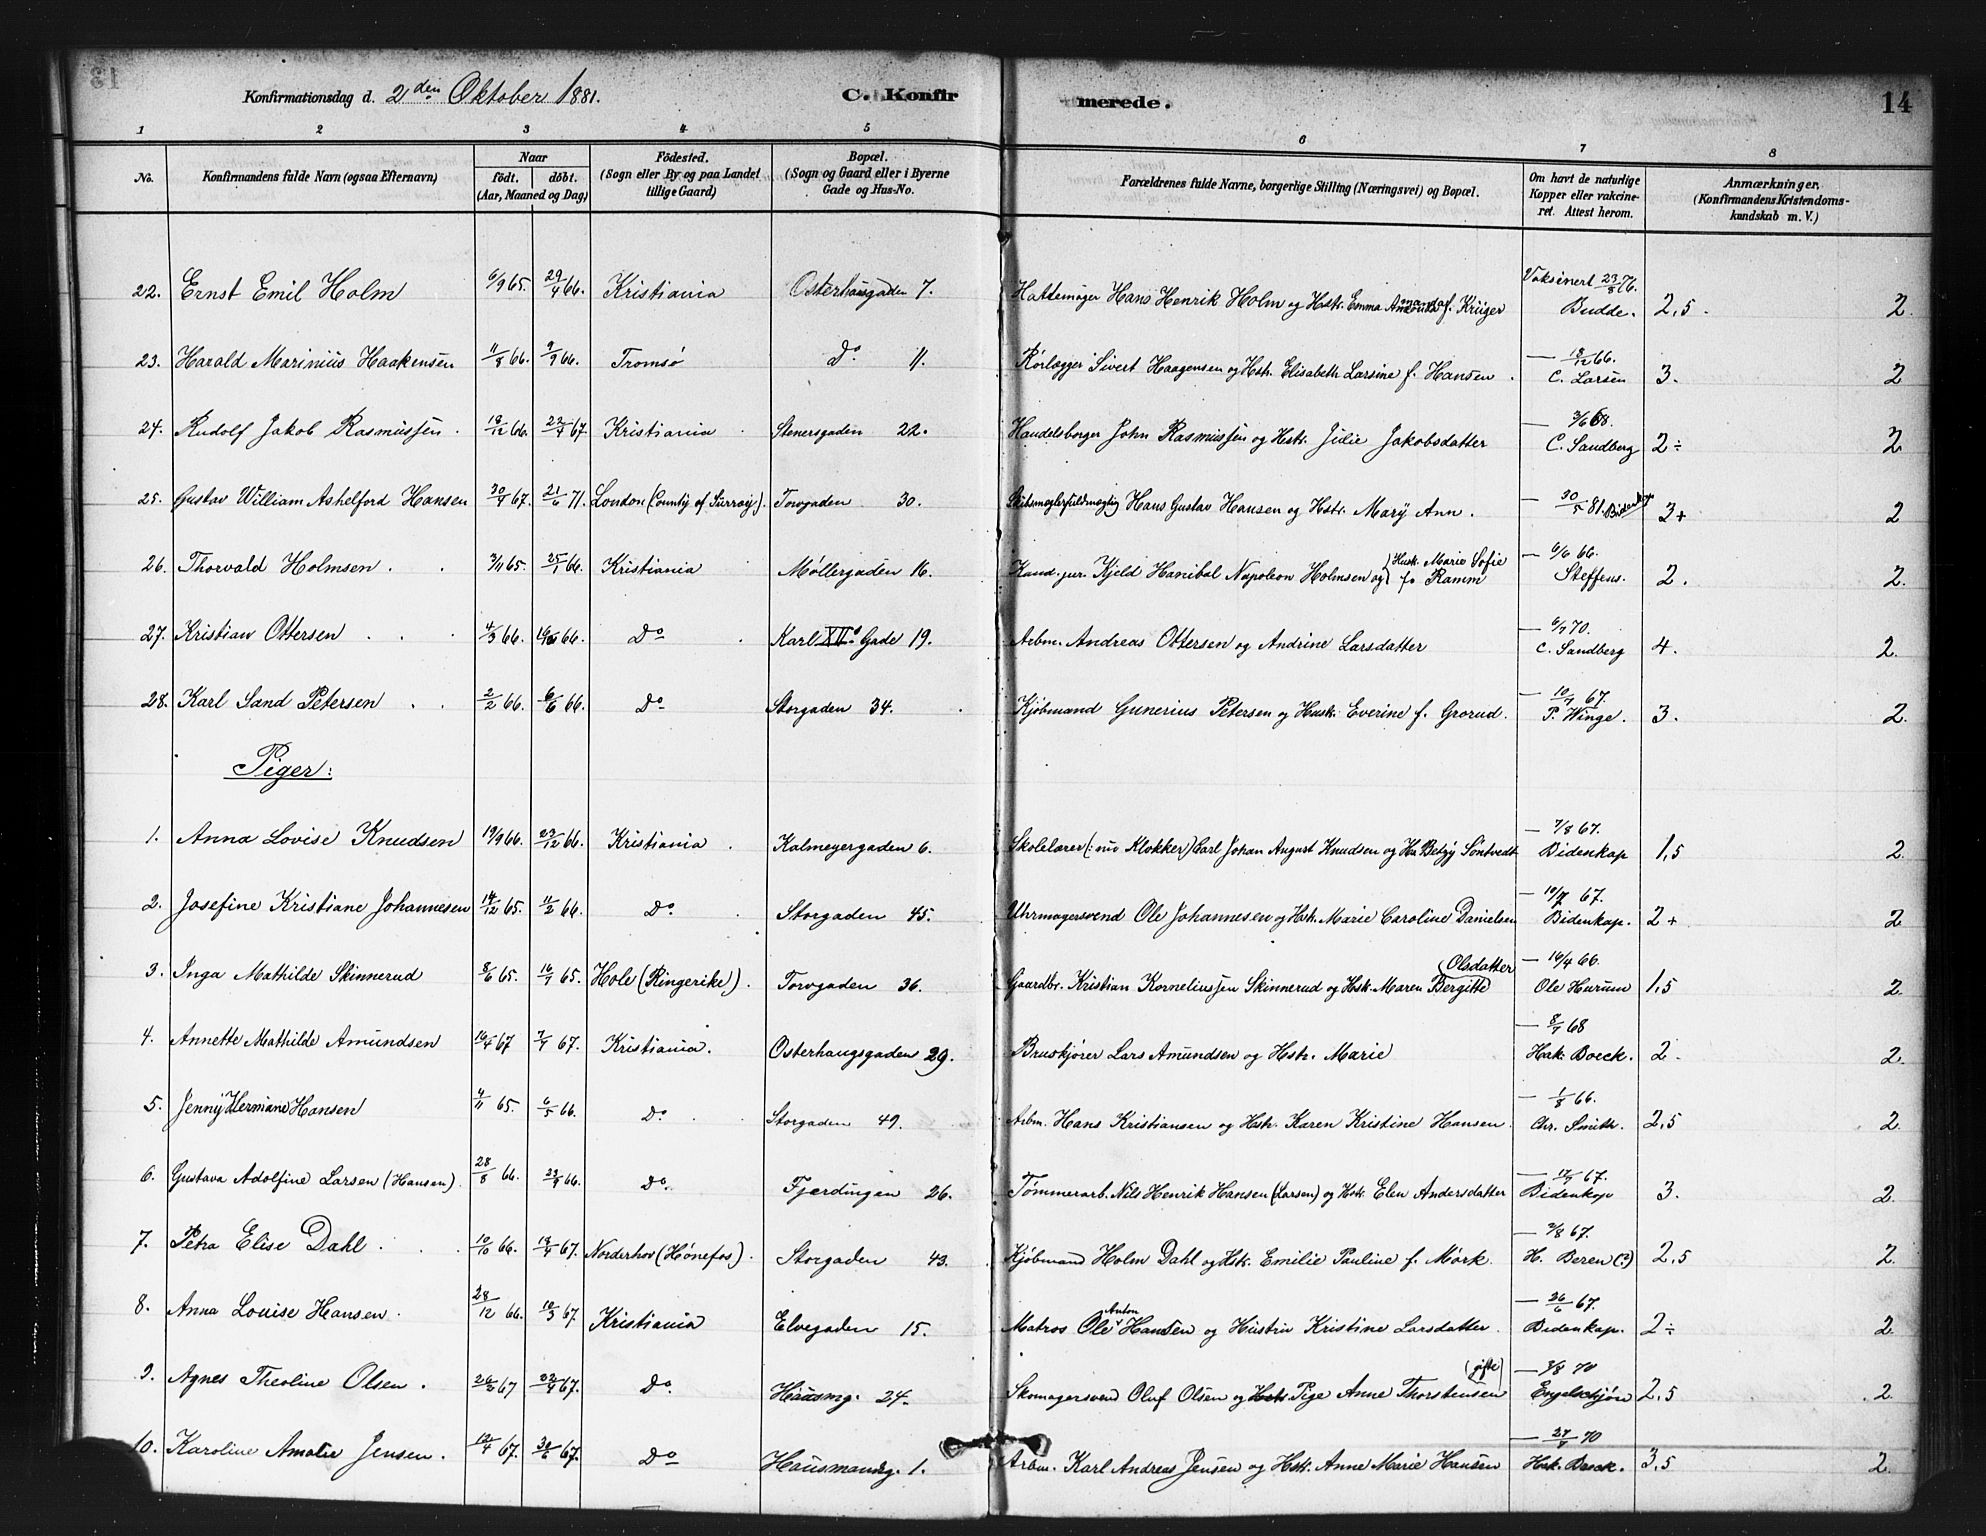 Konfirmationsdag d. 2den Oktober 1881.
C. Konfirmerede.
14
1 2 3 4 5 6 7 8
No.
Konfirmandens fulde Navn (ogsaa Efternavn)
Naar
født. døbt.
(Aar, Maaned og Dag)
Fødested.
(Sogn eller By og paa Landet
tillige Gaard)
Bopæl.
(Sogn og Gaard eller i Byerne
Gade og Hus-No.
Forældrenes fulde Navne, borgerlige Stilling (Næringsvei) og Bopæl.
Om havt de naturlige
Kopper eller vakcine-
ret. Attest herom.
Anmærkninger.
(Konfirmandens Kristendoms-
kundskab m. V.)
22. Ernst Emil Holm 6/9 65. 29/4 66. Kristiania Osterhausgaden 7. Hattemager Hans Henrik Holm og Hstr. Emma Amanda f. Krüger Vaksinert 23/8 76. Budde. 2,5. 2.
23. Harald Marinius Haakensen 11/8 66. 9/9 66. Tromsø Do 11. Rørlægger Sivert Haagensen og Hstr. Elisabeth Larsine f. Hansen. — 18/12 66. C. Larsen 3. 2
24. Rudolf Jakob Rasmussen. 19/12 66. 22/4 67. Kristiania Stenersgaden 22. Handelsborger John Rasmussen og Hstr. Julie Jakobsdatter — 3/6 68. C. Sandberg 2÷ 2
25. Gustav William Ashelford Hansen 30/4 67. 21/6 71. London (County of Surray). Torvgaden 30. Skibsmæglerfuldmægtig Hans Gustav Hansen og Hstr. Mary Ann. — 30/5 81. Bidenkap 3+ 2
26. Thorvald Holmsen 3/11 65. 25/1 66. Kristiania Møllergaden 16. Kand. jur. Kjeld Hanibal Napoleon Holmsen og Hustr. Marie Sofie f. Ramm — 6/6 66. Steffens. 2. 2.
27. Kristian Ottersen 4/3 66. 66. Do Karl XII.s Gade 19. Arbm. Andreas Ottersen og Andrine Larsdatter — 6/7 70. C. Sandberg 4. 2.
28. Karl Sand Petersen 2/2 66. 6/6 66. Do Storgaden 34. Kjøbmand Gunerius Petersen og Hustr. Everine f. Grorud. — 10/9 67. P. Winge. 3. 2.
Piger:
1. Anna Lovise Knudsen 19/9 66. 23/12 66. Kristiania Kalmeyergaden 6. Skolelærer (: nu Klokker) Karl Johan August Knudsen og Hu. Betzy Søntvedt — 7/8 67. Bidenkap 1,5 2.
2. Josefine Kristiane Johannesen 14/12 65. 11/2 66. Do. Storgaden 45. Uhrmagersvend Ole Johannesen og Hstr. Marie Caroline Danielsen — 10/7 67. Bidenkap. 2+ 2
3. Inga Mathilde Skinnerud 8/6 65. 16/7 65. Hole (Ringerike). Torvgaden 36. Gaardbr. Kristian Korneliussen Skinnerud og Hstr. Maren Bergitte Olsdatter — 16/4 66. Ole Hurum 1,5 2.
4. Annette Mathilde Amundsen 16/4 67 7/7 67. Kristiania. Osterhaugsgaden 29. Bruskjører Lars Amundsen og Hstr. Marie — 8/7 68 Hak. Boeck. 2 2.
5. Jenny Hermine Hansen 4/11 65. 6/5 66. Do. Storgaden 49. Arbm. Hans Kristiansen og Hstr. Karen Kristine Hansen. — 1/8 66. Chr. Smith. 2,5 2.
6. Gustava Adolfine Larsen (Hansen). 28/8 66. 23/9 66. Do. Fjerdingen 26. Tømmerarb. Nils Henrik Hansen (Larsen) og Hstr. Elen Andersdatter — 17/7 67. Bidenkap 3. 2.
7. Petra Elise Dahl 10/10 66. 19/4 67. Norderhov (Hønefos). Storgaden 43. Kjøbmand Holm Dahl og Hstr. Emilie Pauline f. Mørk. — 2/8 67. H. Beren (?) 2,5 2.
8. Anna Louise Hansen. 28/12 66. 10/3 67. Kristiania Elvegaden 15. Matros Ole Anton Hansen og Hustru Kristine Larsdatter. — 26/6 67. Bidenkap. 2÷ 2.
9. Agnes Theoline Olsen. 26/2 67 22/4 67. Do. Hausmg. 24. Skomagersvend Oluf Olsen og Hstr. Pige Anne Thorstensen (gifte) — 3/8 70 Engelschjøn 2,5 2.
10. Karoline Amalie Jensen. 12/4 67. 30/6 67. Do Hausmandsg. 1. Arbm. Karl Andreas Jensen og Hstr. Anne Marie Hansen — 27/7 70 Hak. Boeck. 3,5 2.